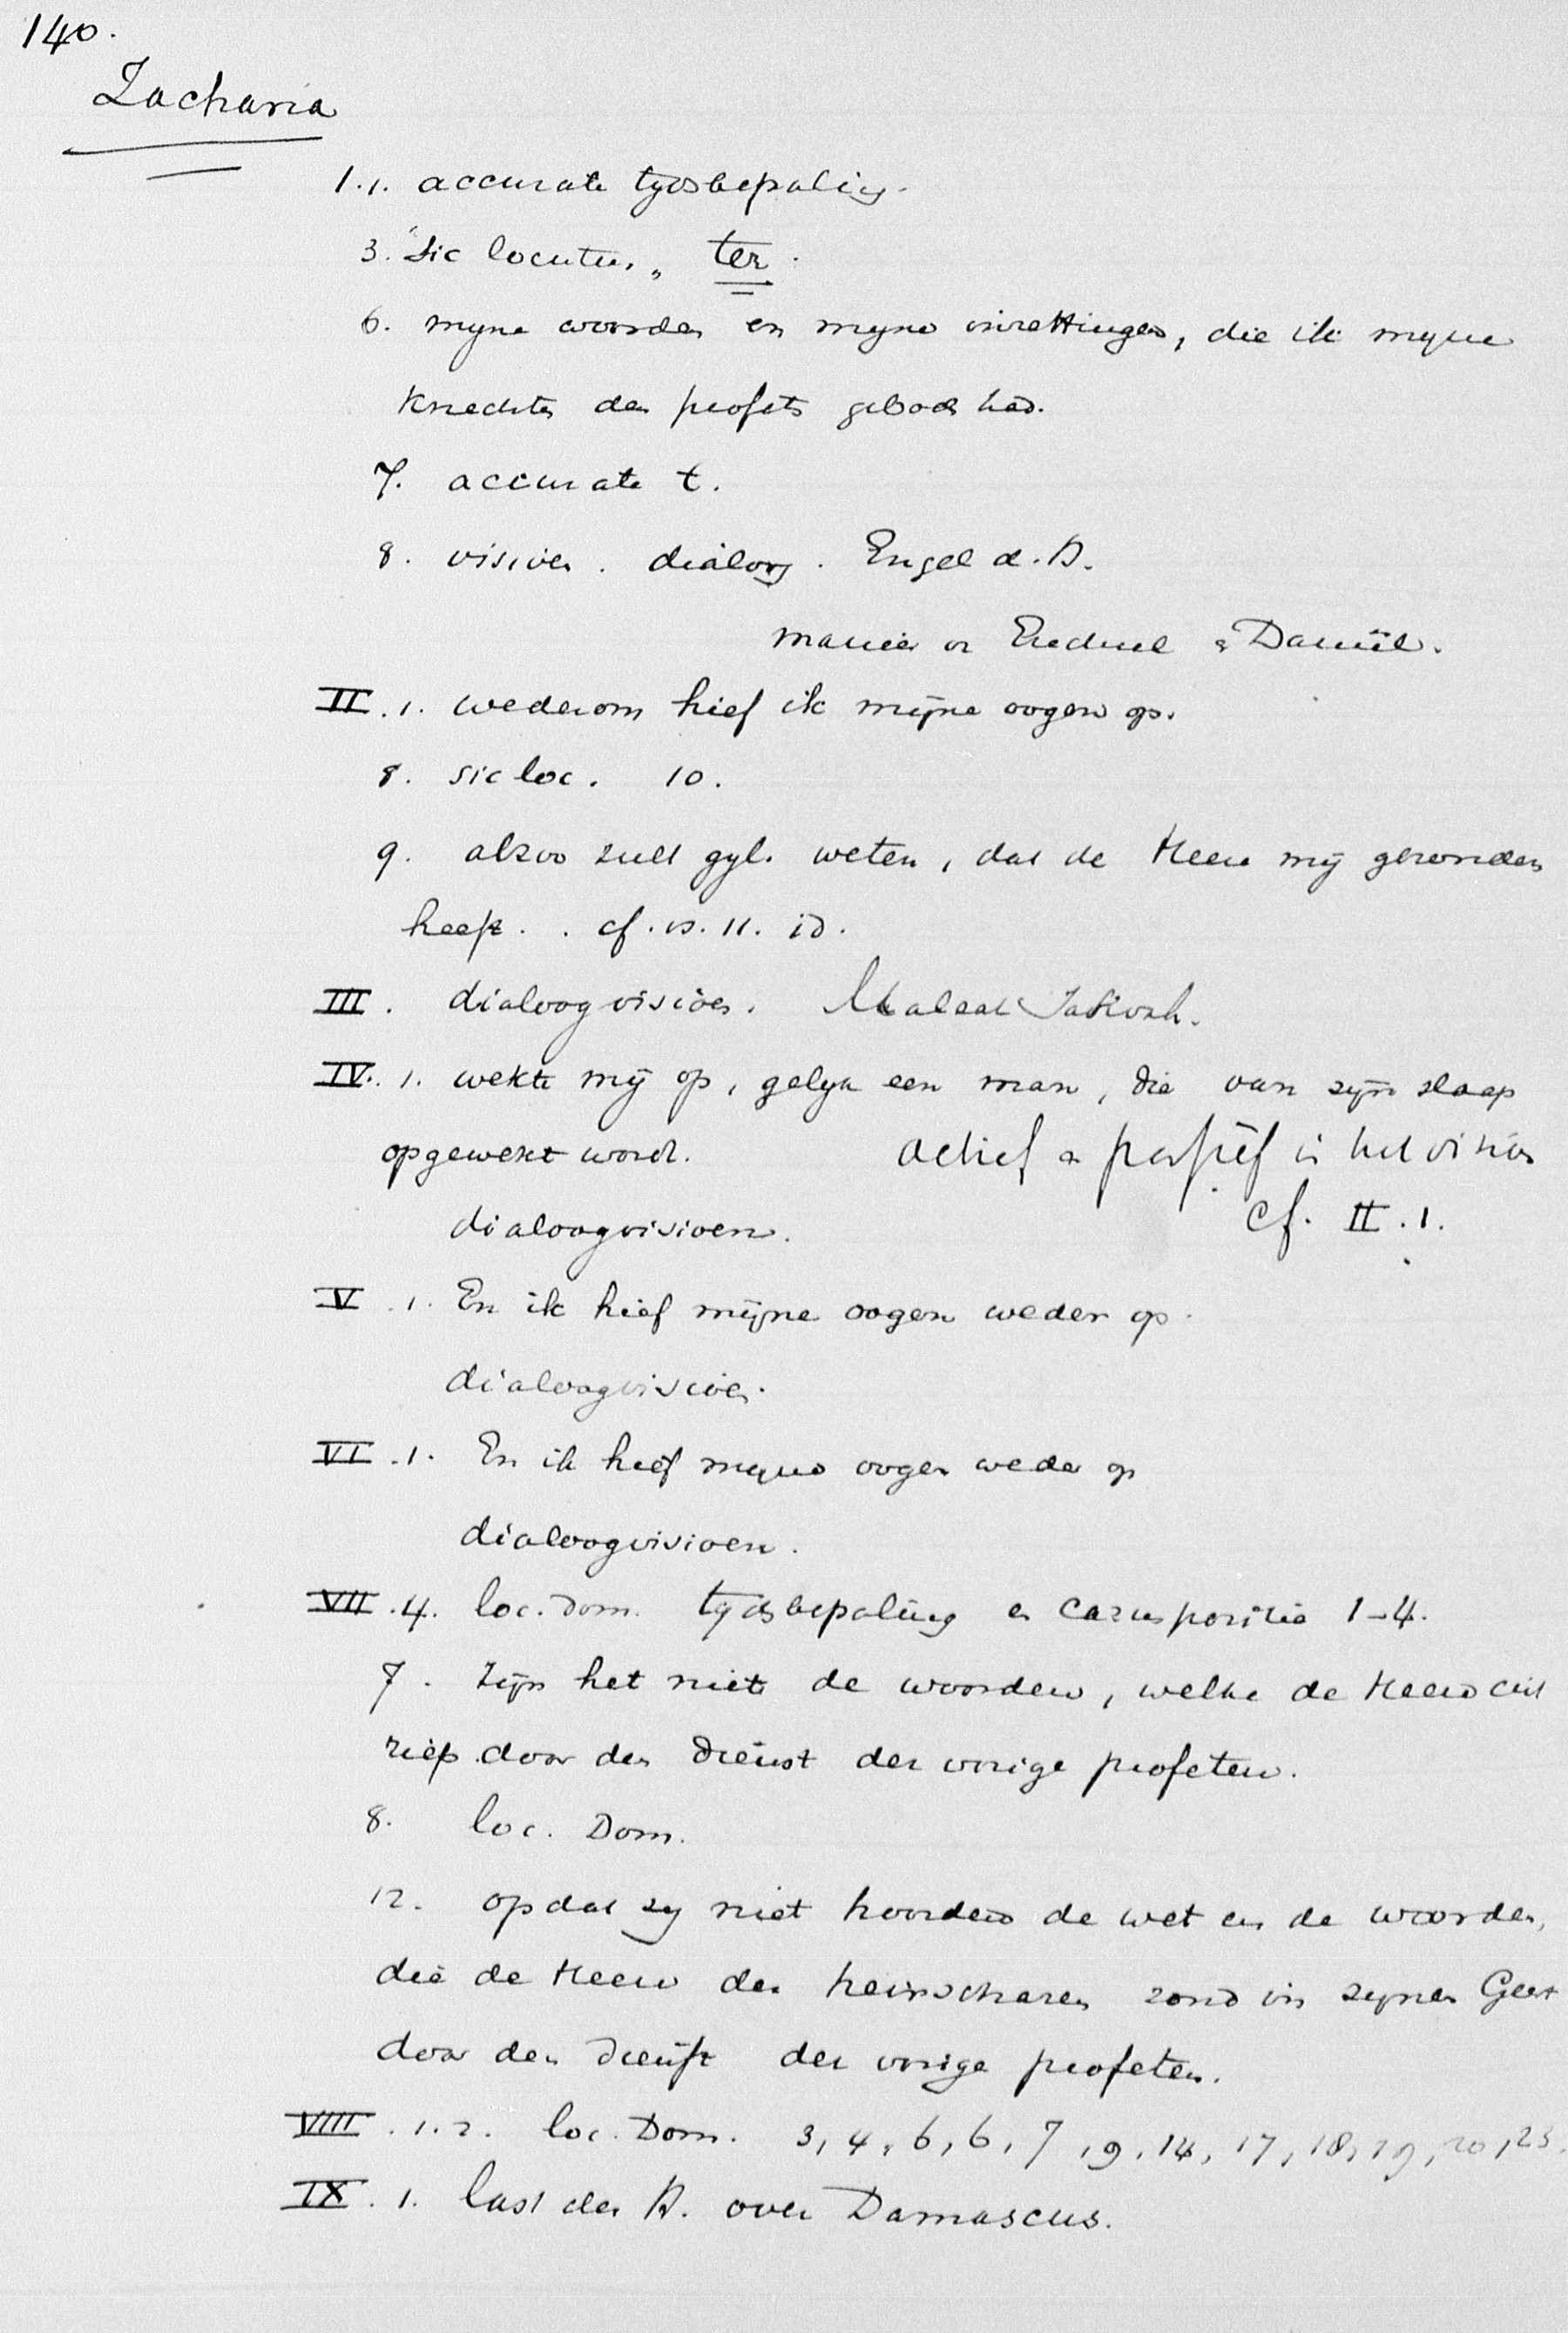 140.
Zacharia
1.1. accurate tydsbepaling.
3. "Sic locutus" ter.
6. myne woorden en myne inzettingen, die ik myne
knechten den profeten geboden had.
7. accurate t.
8. visioen. dialoog. Engel d. H.
manier v. Ezechiel & Daniël.
II. 1. wederom hief ik mijne oogen op.
8. sic loc. 10.
9. alzoo zult gyl. weten, dat de Heere mij gezonden
heeft. . cf. vs. 11. id.
III. dialoogvisioen. Maleak
IV. 1. wekte mij op, gelyk een man, die van zijn slaap
opgewekt wordt. actief & passief in het visioen
dialoogvisioen. cf. II. 1.
V. 1. En ik hief mijne oogen weder op.
dialoogvisioen.
VI. 1. En ik hief myne oogen weder op
dialoogvisioen.
VII. 4. loc. Dom. tydsbepaling en casuspositie 1-4.
7. Zijn het niet de woorden, welke de Heere uit
riep door den dienst der vorige profeten.
8. loc. Dom.
12. opdat zy niet hoorden de wet en de woorden,
die de Heere der heirscharen zond in zynen Geest
door den dienst der vorige profeten.
VIII. 1. 2. loc. Dom. 3, 4, 6, 6, 7, 9, 14, 17, 18, 19, 20, 23.
IX. 1. last des H. over Damascus.